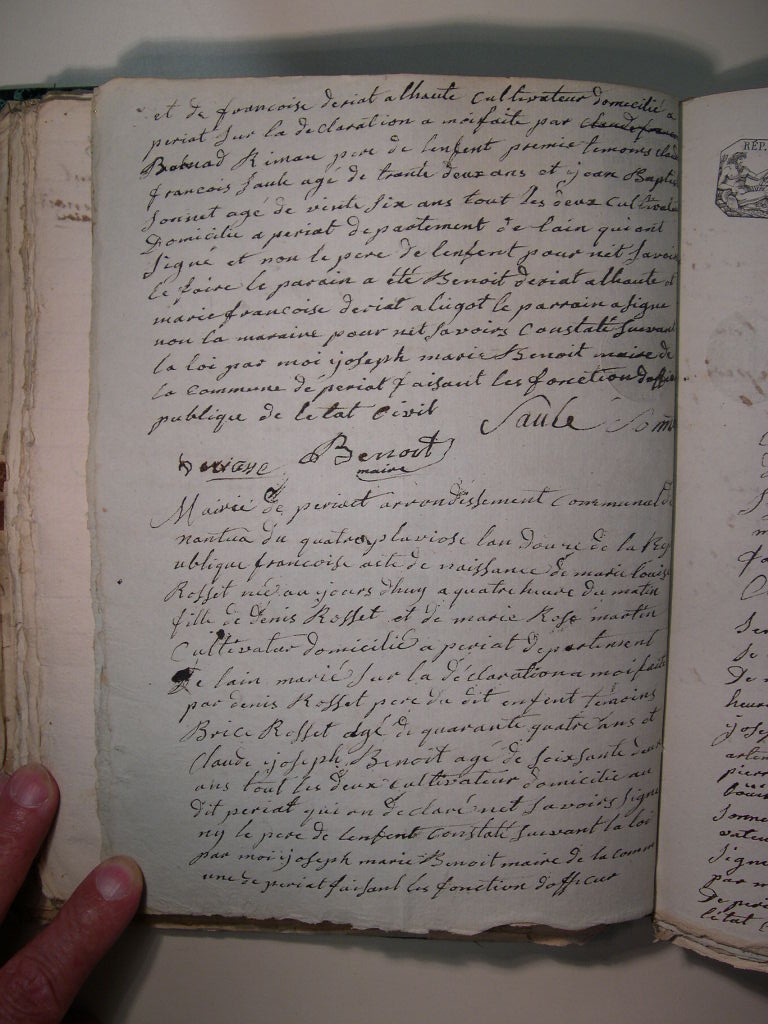 et de francoise deriat alhaute Cultivateur domicilié a
periat Sur la declaration a moi faite par claude francois
Rimau pere de lenfent premie temoins claude
francois Saule agé de trante deux ans et ijean Baptis
Sonnet agé de vinte Six ans tout les deux Cultivate
Domicilié a periat departement de lain qui ont
Signe et non le pere de lenfent pour net Savoir
le faire le parain a été Benoit deriat alhaute et
marie francoise deriat alugot le parrain a signe
non la maraine pour net Savoirs Constaté Suivant
la loi par moi ijoseph marie Benoit maire de
la Commune de periat faisant les fonction dofficier
publique de letat Civil
Saule Sonn
Benoit
maire
Mairie de periat arrondissement Communal de
nantua du quatre pluviose lan douze de la Rep
ublique francoise acte de naissance de marie louise
Rosset née au ijours dhuy a quatre heure du matin
fille de denis Rosset et de marie Rose martin
Cultivateur domicilié a periat departement
De lain marié Sur la déclaration a moi faite
par denis Rosset pere du dit enfent temoins
Brice Rosset agé de quarante quatre ans et
Claude ijoseph Benoit agé de soixsante deux
ans tout les deux cultivateur domicilie au
dit periat qui on declaré net Savoirs Signe
ny le pere de lenfent Constaté Suivant la loi
par moi ijoseph marie Benoit maire de la comm
une de periat faisant les fonction dofficier
RÉP.